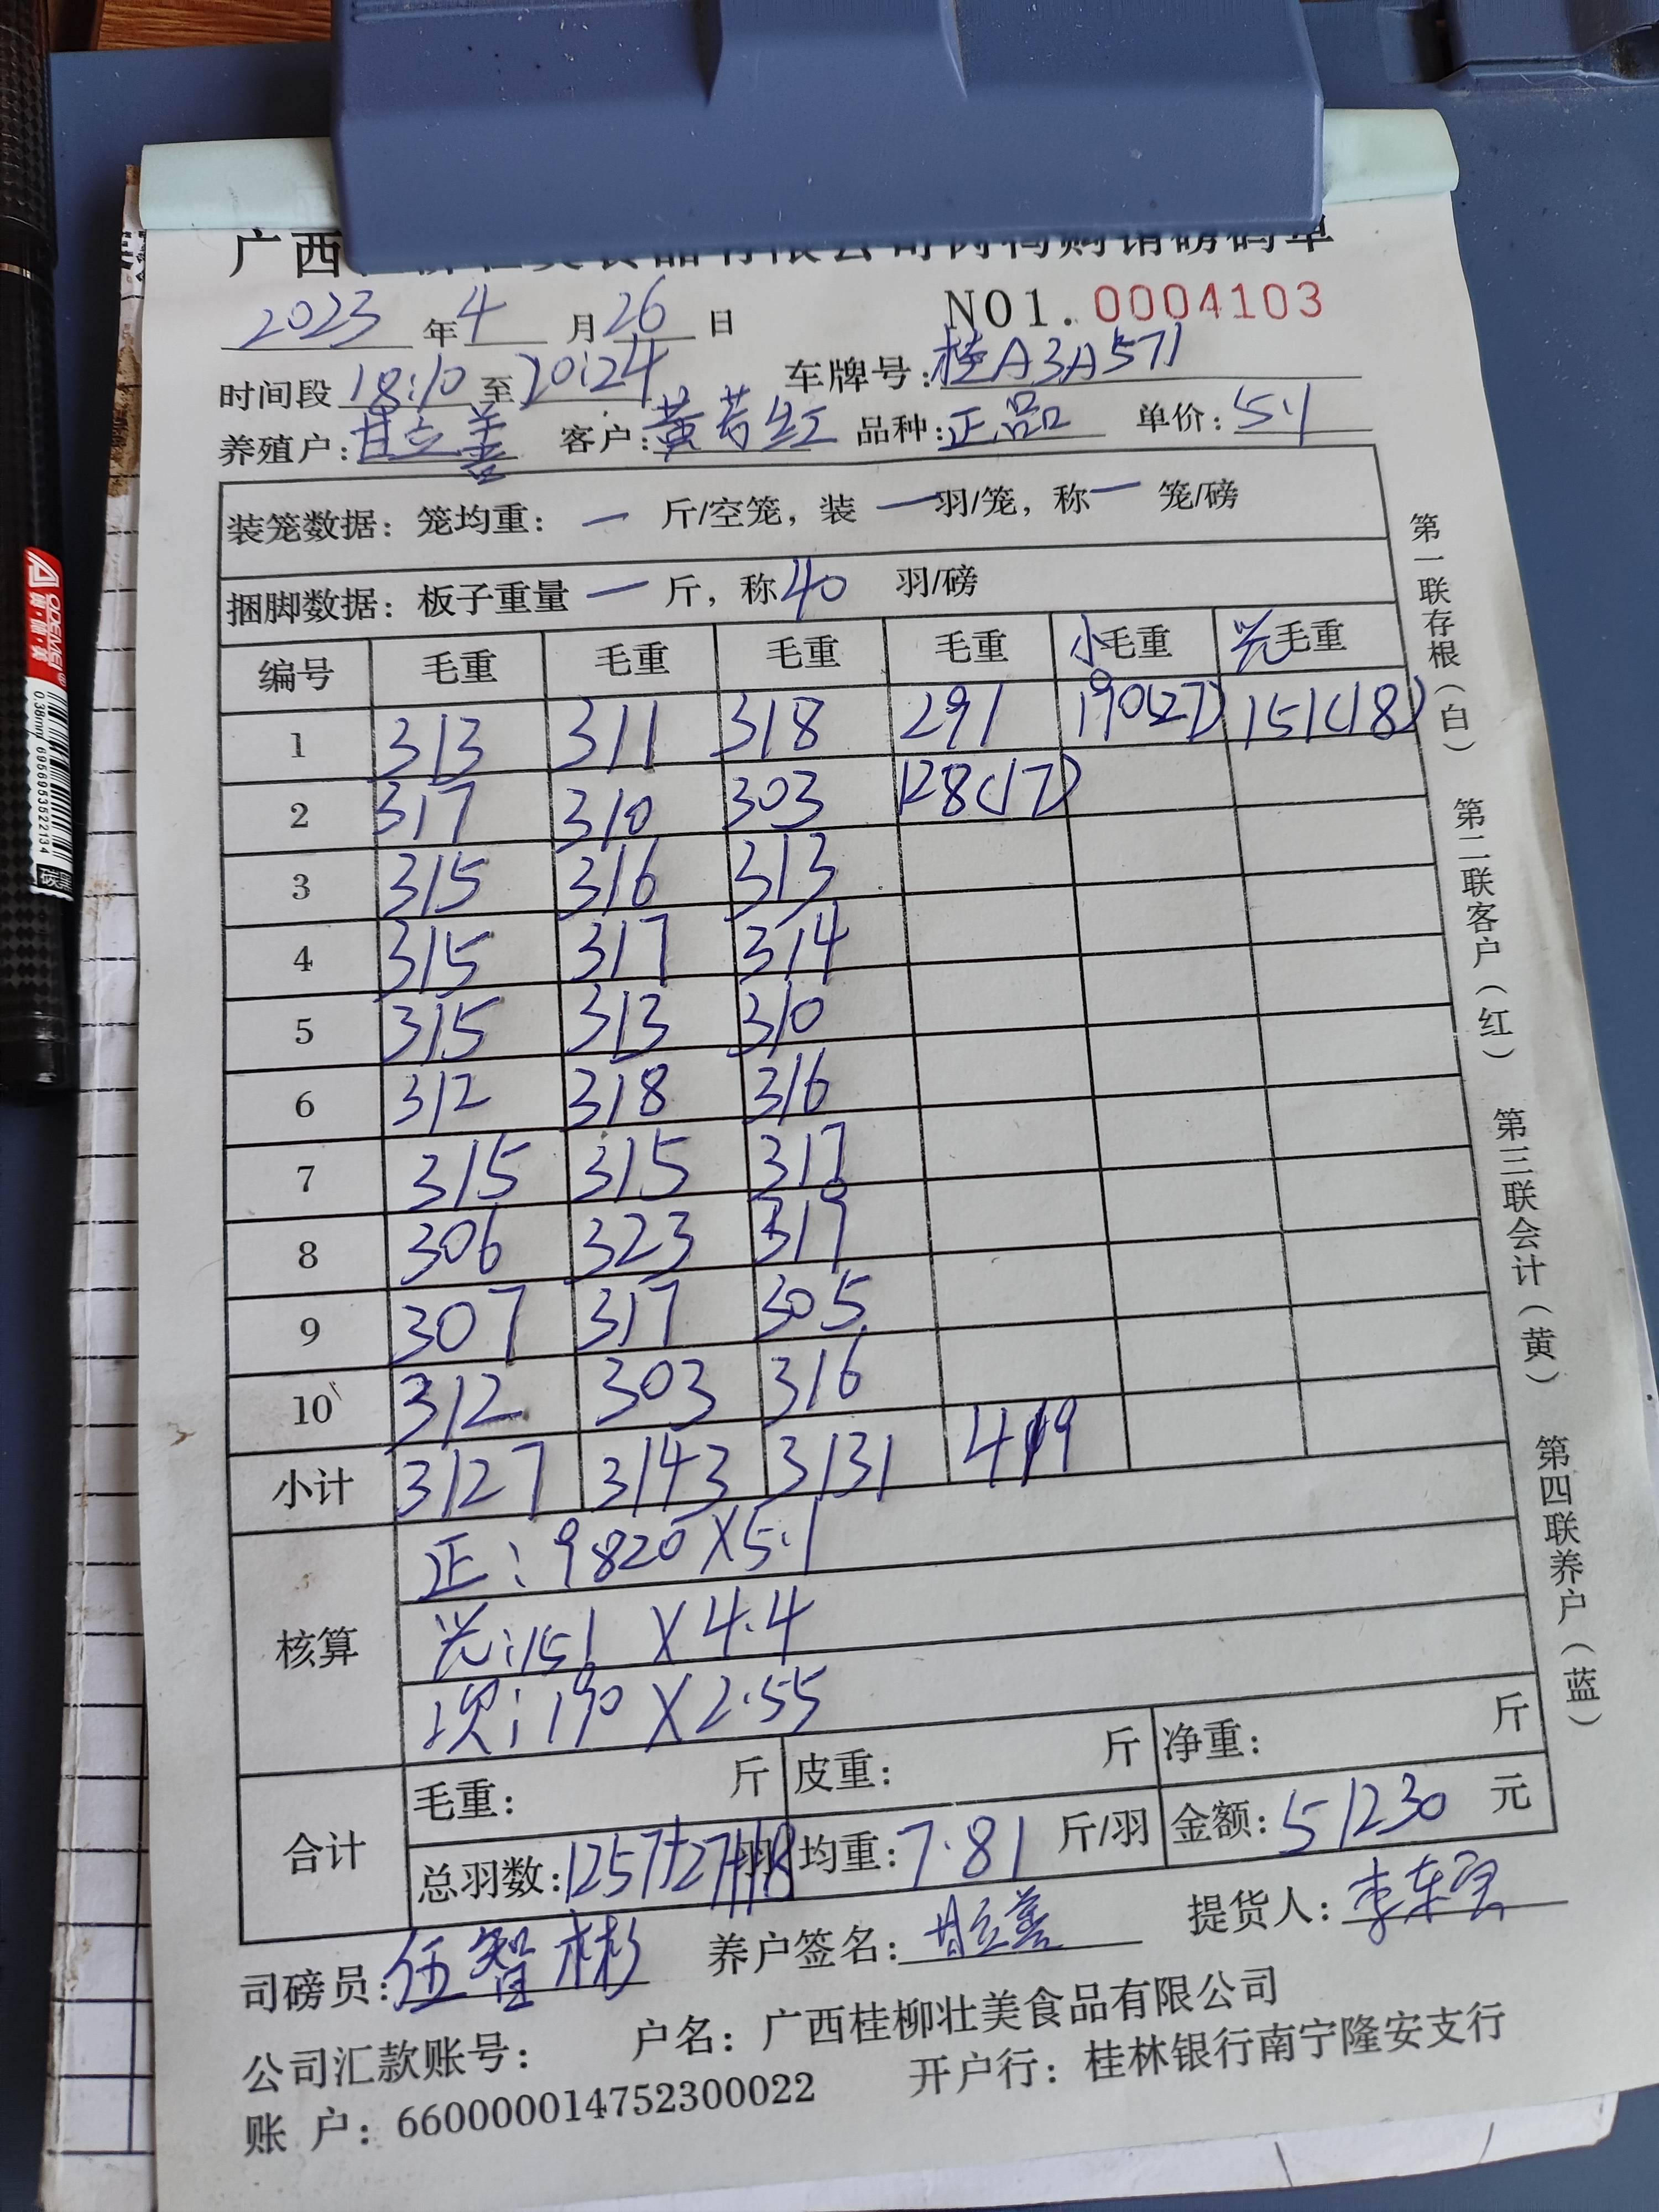 广西
2023 年 4 月 26 日 NO1. 0004103
时间段 18:10 至 20:24 车牌号: 桂A3A571
养殖户: 甘立善 客户: 黄芳红 品种: 正品 单价: 5.1
装笼数据: 笼均重: — 斤/空笼, 装 — 羽/笼, 称 — 笼/磅
捆脚数据: 板子重量 — 斤, 称 40 羽/磅
编号 毛重 毛重 毛重 毛重 小毛重 光毛重
1 313 311 318 291 190(27) 151(18)
2 317 310 303 128(17)
3 315 316 313
4 315 317 314
5 315 313 310
6 312 318 316
7 315 315 317
8 306 323 319
9 307 317 305
10 312 303 316
小计 3127 3143 3131 419
核算
正: 9820 X 5.1
光: 151 X 4.4
次: 190 X 2.55
合计
毛重: 斤 皮重: 斤 净重: 斤
总羽数: 1257+27+18 羽 均重: 7.81 斤/羽 金额: 51230 元
司磅员: 伍智彬 养户签名: 甘立善 提货人:
公司汇款账号: 户名: 广西桂柳壮美食品有限公司
账 户: 660000014752300022 开户行: 桂林银行南宁隆安支行
第一联存根(白) 第二联客户(红) 第三联会计(黄) 第四联养户(蓝)
0.38mm 6956805322134